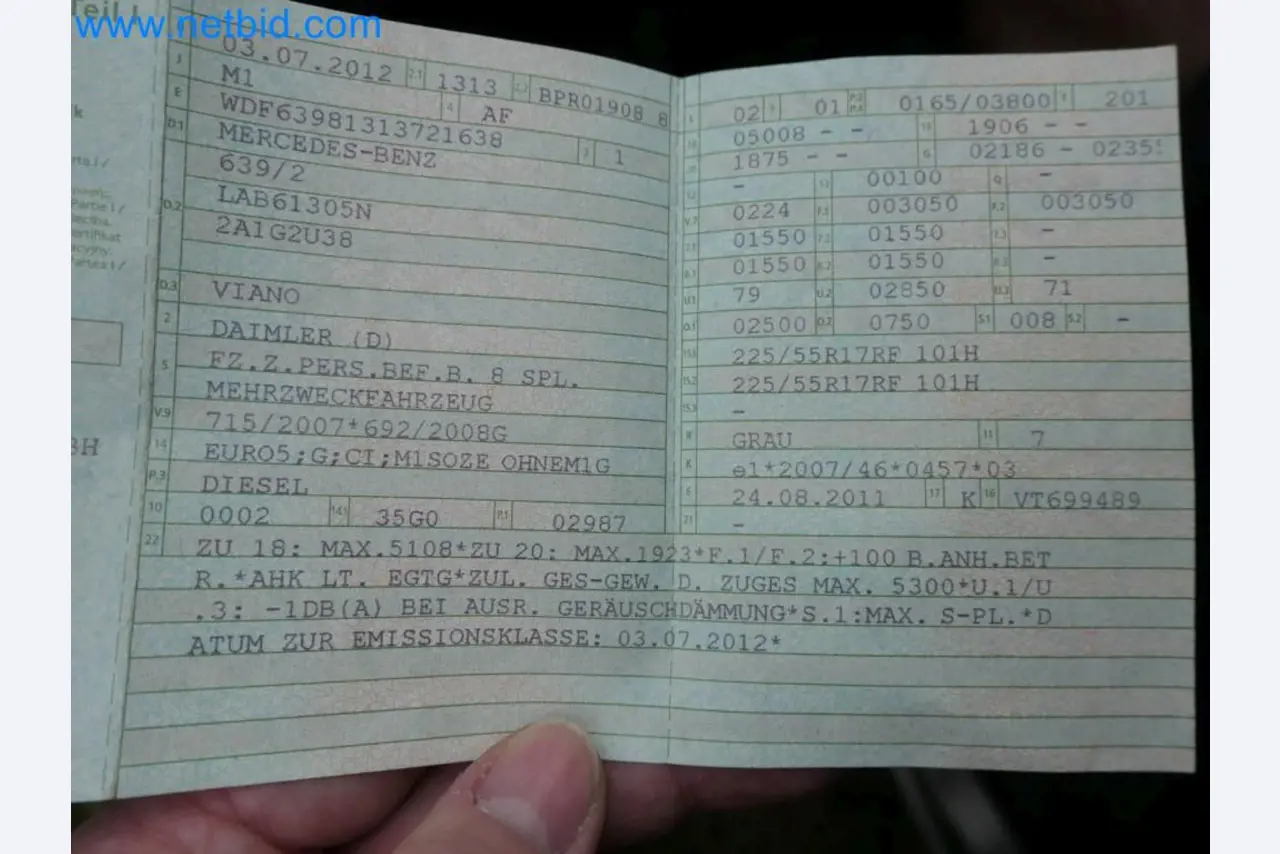 Teil I
www.netbid.com
03.07.2012 2.1 1313 2.2 BPR01908 8
J M1 4 AF
E WDF63981313721638 3 1
D.1 MERCEDES-BENZ
639/2
D.2 LAB61305N
2A1G2U38
D.3 VIANO
2 DAIMLER (D)
5 FZ.Z.PERS.BEF.B. 8 SPL.
MEHRZWECKFAHRZEUG
V.9 715/2007*692/2008G
14 EURO5;G;CI;M1SOZE OHNEM1G
P.3 DIESEL
10 0002 14.1 35G0 P.1 02987
L 02 9 01 P.2 P.4 0165/03800 T 201
18 05008 - - 19 1906 - -
20 1875 - - G 02186 - 0235
12 - 13 00100 Q -
V.7 0224 F.1 003050 F.2 003050
7.1 01550 7.2 01550 7.3 -
8.1 01550 8.2 01550 8.3 -
U.1 79 U.2 02850 U.3 71
O.1 02500 O.2 0750 S.1 008 S.2 -
15.1 225/55R17RF 101H
15.2 225/55R17RF 101H
15.3 -
R GRAU 11 7
K e1*2007/46*0457*03
6 24.08.2011 17 K 16 VT699489
21 -
22 ZU 18: MAX.5108*ZU 20: MAX.1923*F.1/F.2:+100 B.ANH.BET
R.*AHK LT. EGTG*ZUL. GES-GEW. D. ZUGES MAX. 5300*U.1/U
.3: -1DB(A) BEI AUSR. GERÄUSCHDÄMMUNG*S.1:MAX. S-PL.*D
ATUM ZUR EMISSIONSKLASSE: 03.07.2012*